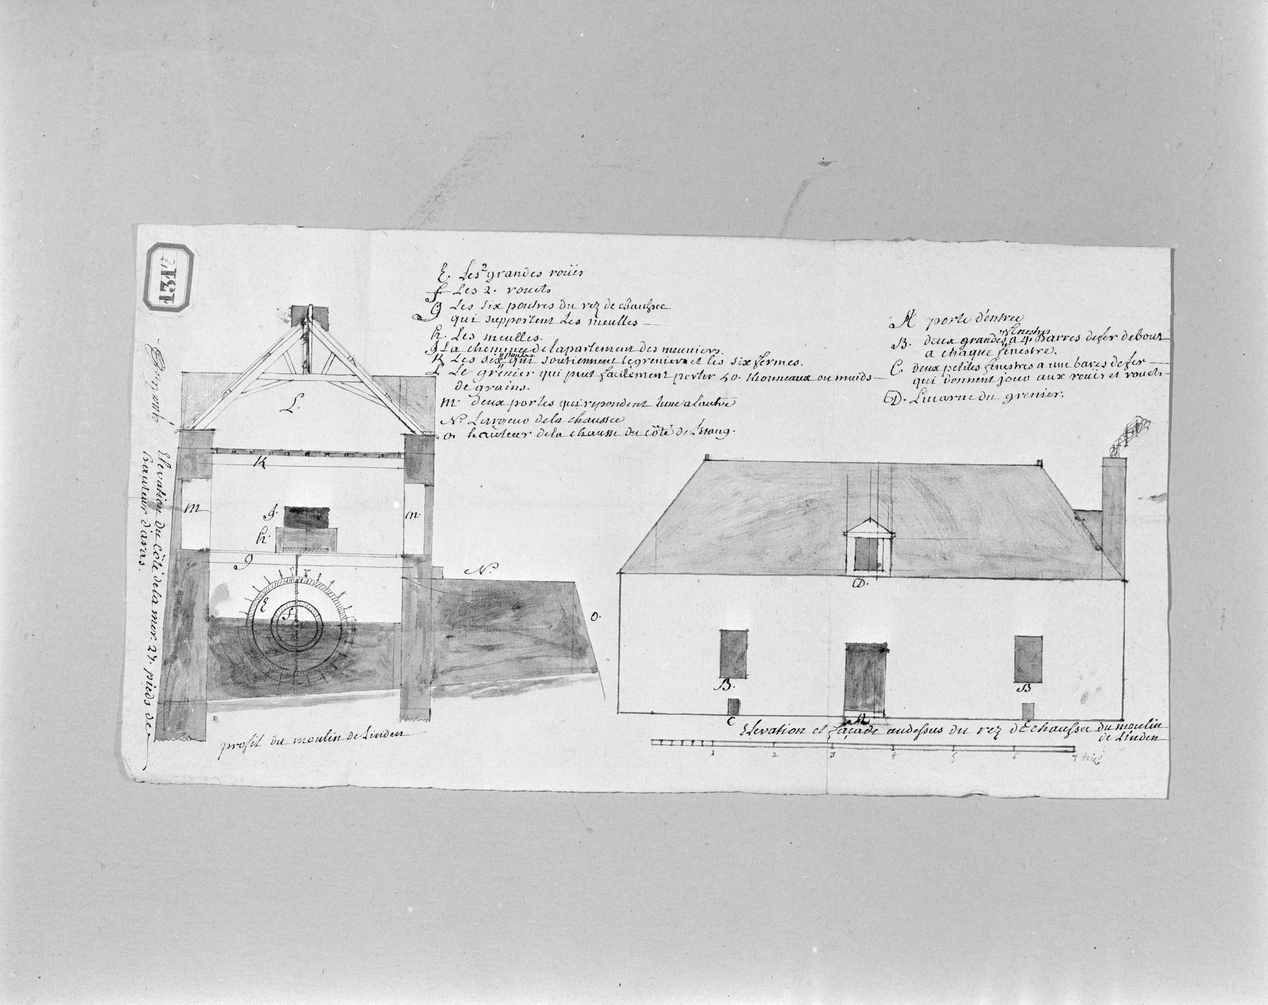 131
E. Les 2 grandes rouës
f Les 2. rouets
g Les six poutres du rez de chaussee
qui supportent Les meulles —
h. Les meulles.
J La cheminee de lapartement des meuniers.
K Les six poutres qui soutiennent le grenier et les six fermes.
L Le grenier qui peut facilement porter 40. thonneaux ou muids —
de grains.
m. deux portes qui repondent lune a lautre
N. Largeur de la chaussee
o. hauteur de la chausse du côté de Lestang.
A porte d'entree
B. deux grandes fenestres a 4 Barres de fer debout
a chaque fenestre.
C. deux petites fenestres a une bares de fer —
qui donnent jour aux rouës et rouets —
D. Lucarne du grenier.
Elevation du côté de la mer. 27. pieds de —
hauteur
L.
K
m
m
J.
h.
g
E
f
N.
O.
D.
B.
B
C
A
profil du moulin de Linden
Elevation et façade audessus du rez de chaussee du moulin
de Linden
1 2 3 4 5 6 7 toises